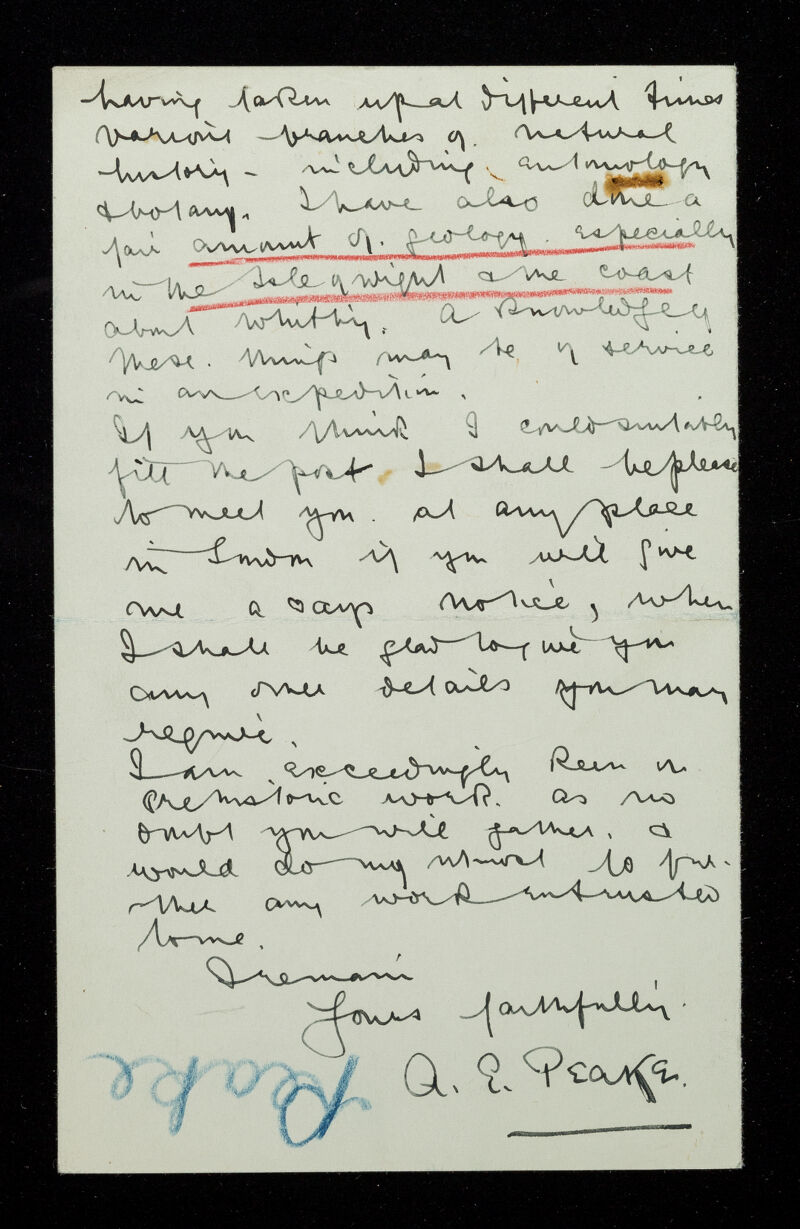 having taken up at different times
various branches of natural
history - including entomology
& botany. I have also done a
fair amount of geology especially
in the Isle of wight & the coast
about Whitby. A knowledge of
these things may be of service
in an expedition.
If you think I could suitably
fill the post I shall be please
to meet you at any place
in London if you will give
me a days notice, when
I shall be glad to give you
any other details you may
require.
I am exceedingly keen on
prehistoric work. as no
doubt you will gather. &
would do my utmost to fur-
ther any work entrusted
to me.
I remain
Yours faithfully
A. E. PEAKE.
Peake